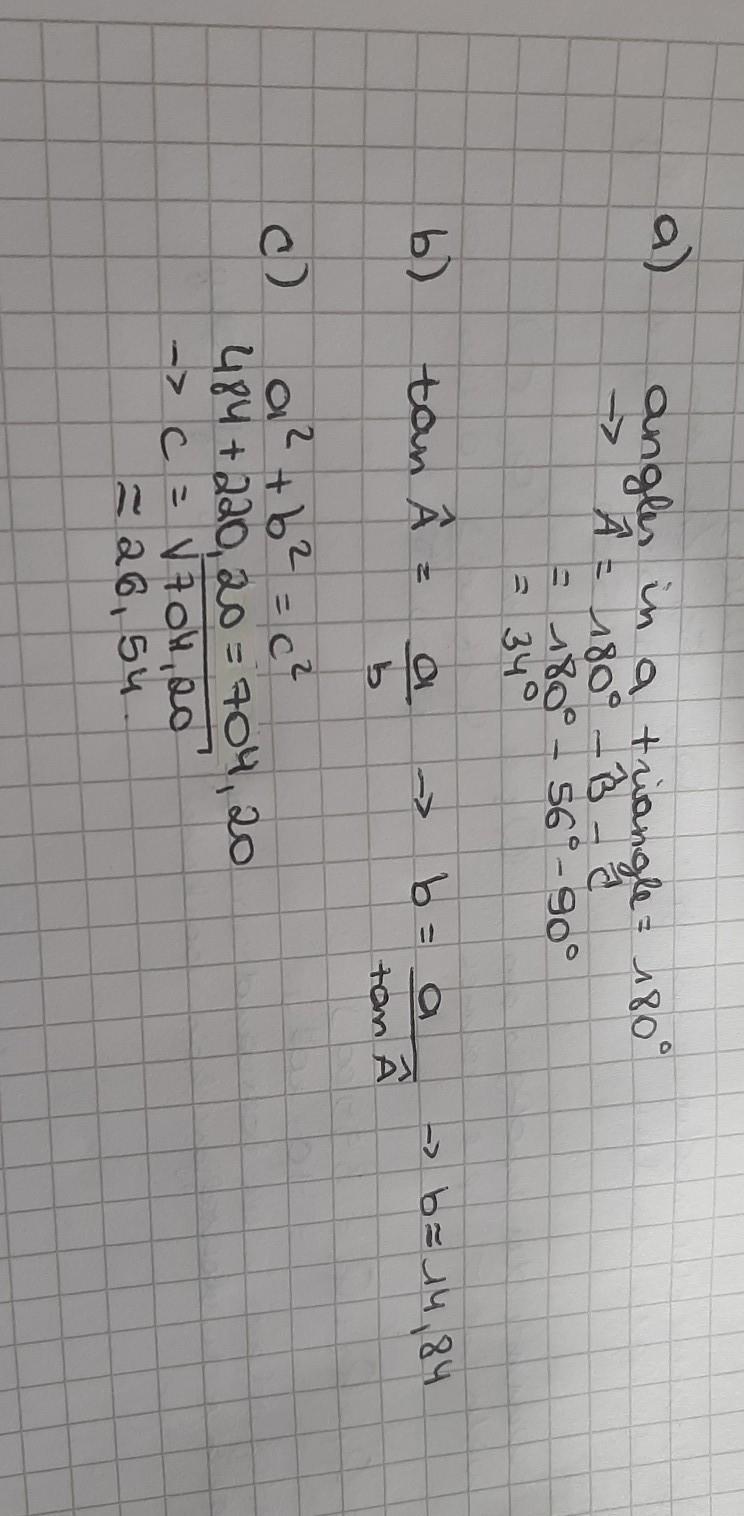 a) angles in a triangle = 180°
→ Â = 180° - B̂ - Ĉ
= 180° - 56° - 90°
= 34°
b) tan Â = a/b → b = a/tan Â → b = 14,84
c) a² + b² = c²
484 + 220,20 = 704,20
→ c = √704,20
≅ 26,54